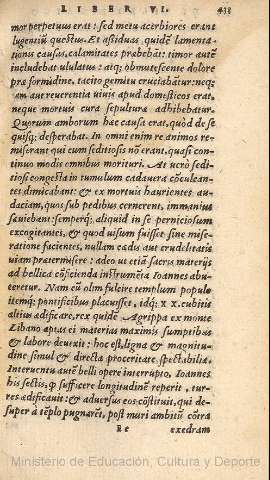 LIBER VI. 438
mor perpetuus erat: sed metu acerbiores erant
lugentiū questus. Et assiduas quidē lamenta-
tionis causas, calamitates præbebāt: timor autē
includebat ululatus: atq; obmutescente dolore
præ formidine, tacito gemitu cruciabātur: neq;
am aut reuerentia uiuis apud domesticos erat,
neque mortuis cura sepulturæ adhibebatur.
Quorum amborum hæc causa erat, quòd de se
quisq; desperabat. In omni enim re animos re-
miserant qui cum seditiosis nō erant, quasi con-
tinuo modis omnibus morituri. At uerò sedi-
tiosi congesta in tumulum cadauera cōculcan-
tes dimicabant: & ex mortuis haurientes au-
daciam, quos sub pedibus cernerent, immanius
sæuiebant: semperq́; aliquid in se perniciosum
excogitantes, & quod uisum fuisset sine mise-
ratione facientes, nullam cædis aut crudelitatis
uiam prætermisere: adeo ut etiā sacris materijs
ad bellica cōficienda instrumēta Ioannes abu-
teretur. Nam cū olim fulcire templum popule
itemq́; pontificibus placuisset, idq́; x x.cubitis
altius ædificare, rex quidē Agrippa ex monte
Libano aptas ei materias maximis sumptibus
& labore deuexit: hoc est, ligna & magnitu-
dine simul & directa proceritate spectabilia.
Interuentu autē belli opere interrupto, Ioannes
his sectis, ꝙ sufficere longitudinē reperit, tur-
res ædificauit: & aduersus eos cōstituit, qui de-
super à tēplo pugnarēt, post muri ambitū cōtra
Ee exedram
Ministerio de Educación, Cultura y Deporte